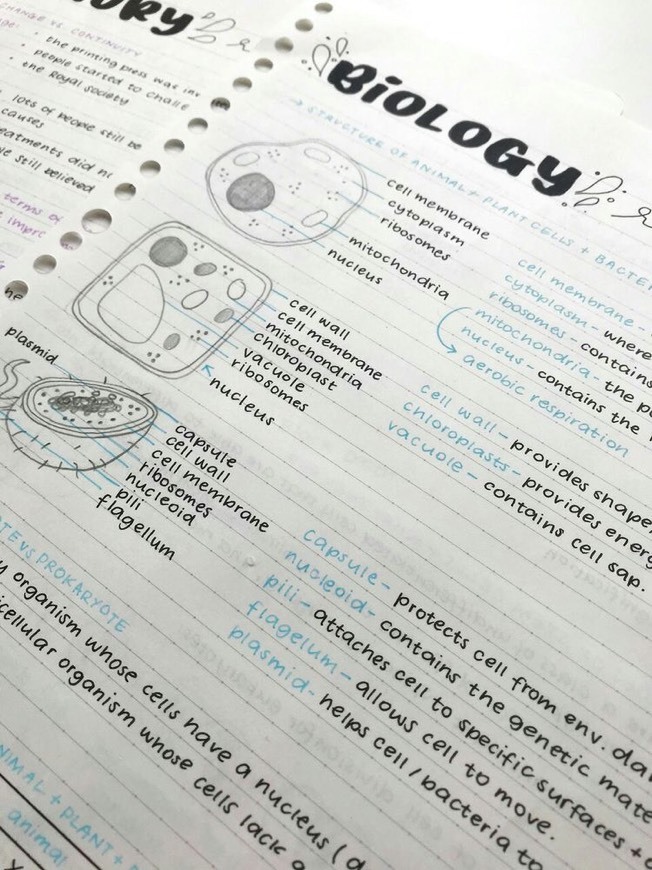 CHANGE VS CONTINUITY
• the printing press was inv
• people started to challe
• the Royal Society
lots of people still be
causes
still believed
terms of
BIOLOGY
→ STRUCTURE OF ANIMAL + PLANT CELLS + BACTER
cell membrane
cytoplasm
ribosomes
mitochondria
nucleus
cell wall
cell membrane
mitochondria
chloroplast
vacuole
ribosomes
nucleus
plasmid
capsule
cell wall
cell membrane
ribosomes
nucleoid
pili
flagellum
cell membrane -
cytoplasm - where
ribosomes - contains
mitochondria - the
nucleus - contains the
→ aerobic respiration
cell wall - provides shape
chloroplasts - provides energ
vacuole - contains cell sap.
capsule - protects cell from env. da
nucleoid - contains the genetic mate
pili - attaches cell to specific surfaces +
flagellum - allows cell to move.
plasmid - helps cell/bacteria to
VS PROKARYOTE
organism whose cells have a nucleus (
icellular organism whose cells lack
NIMAL + PLANT +
animal